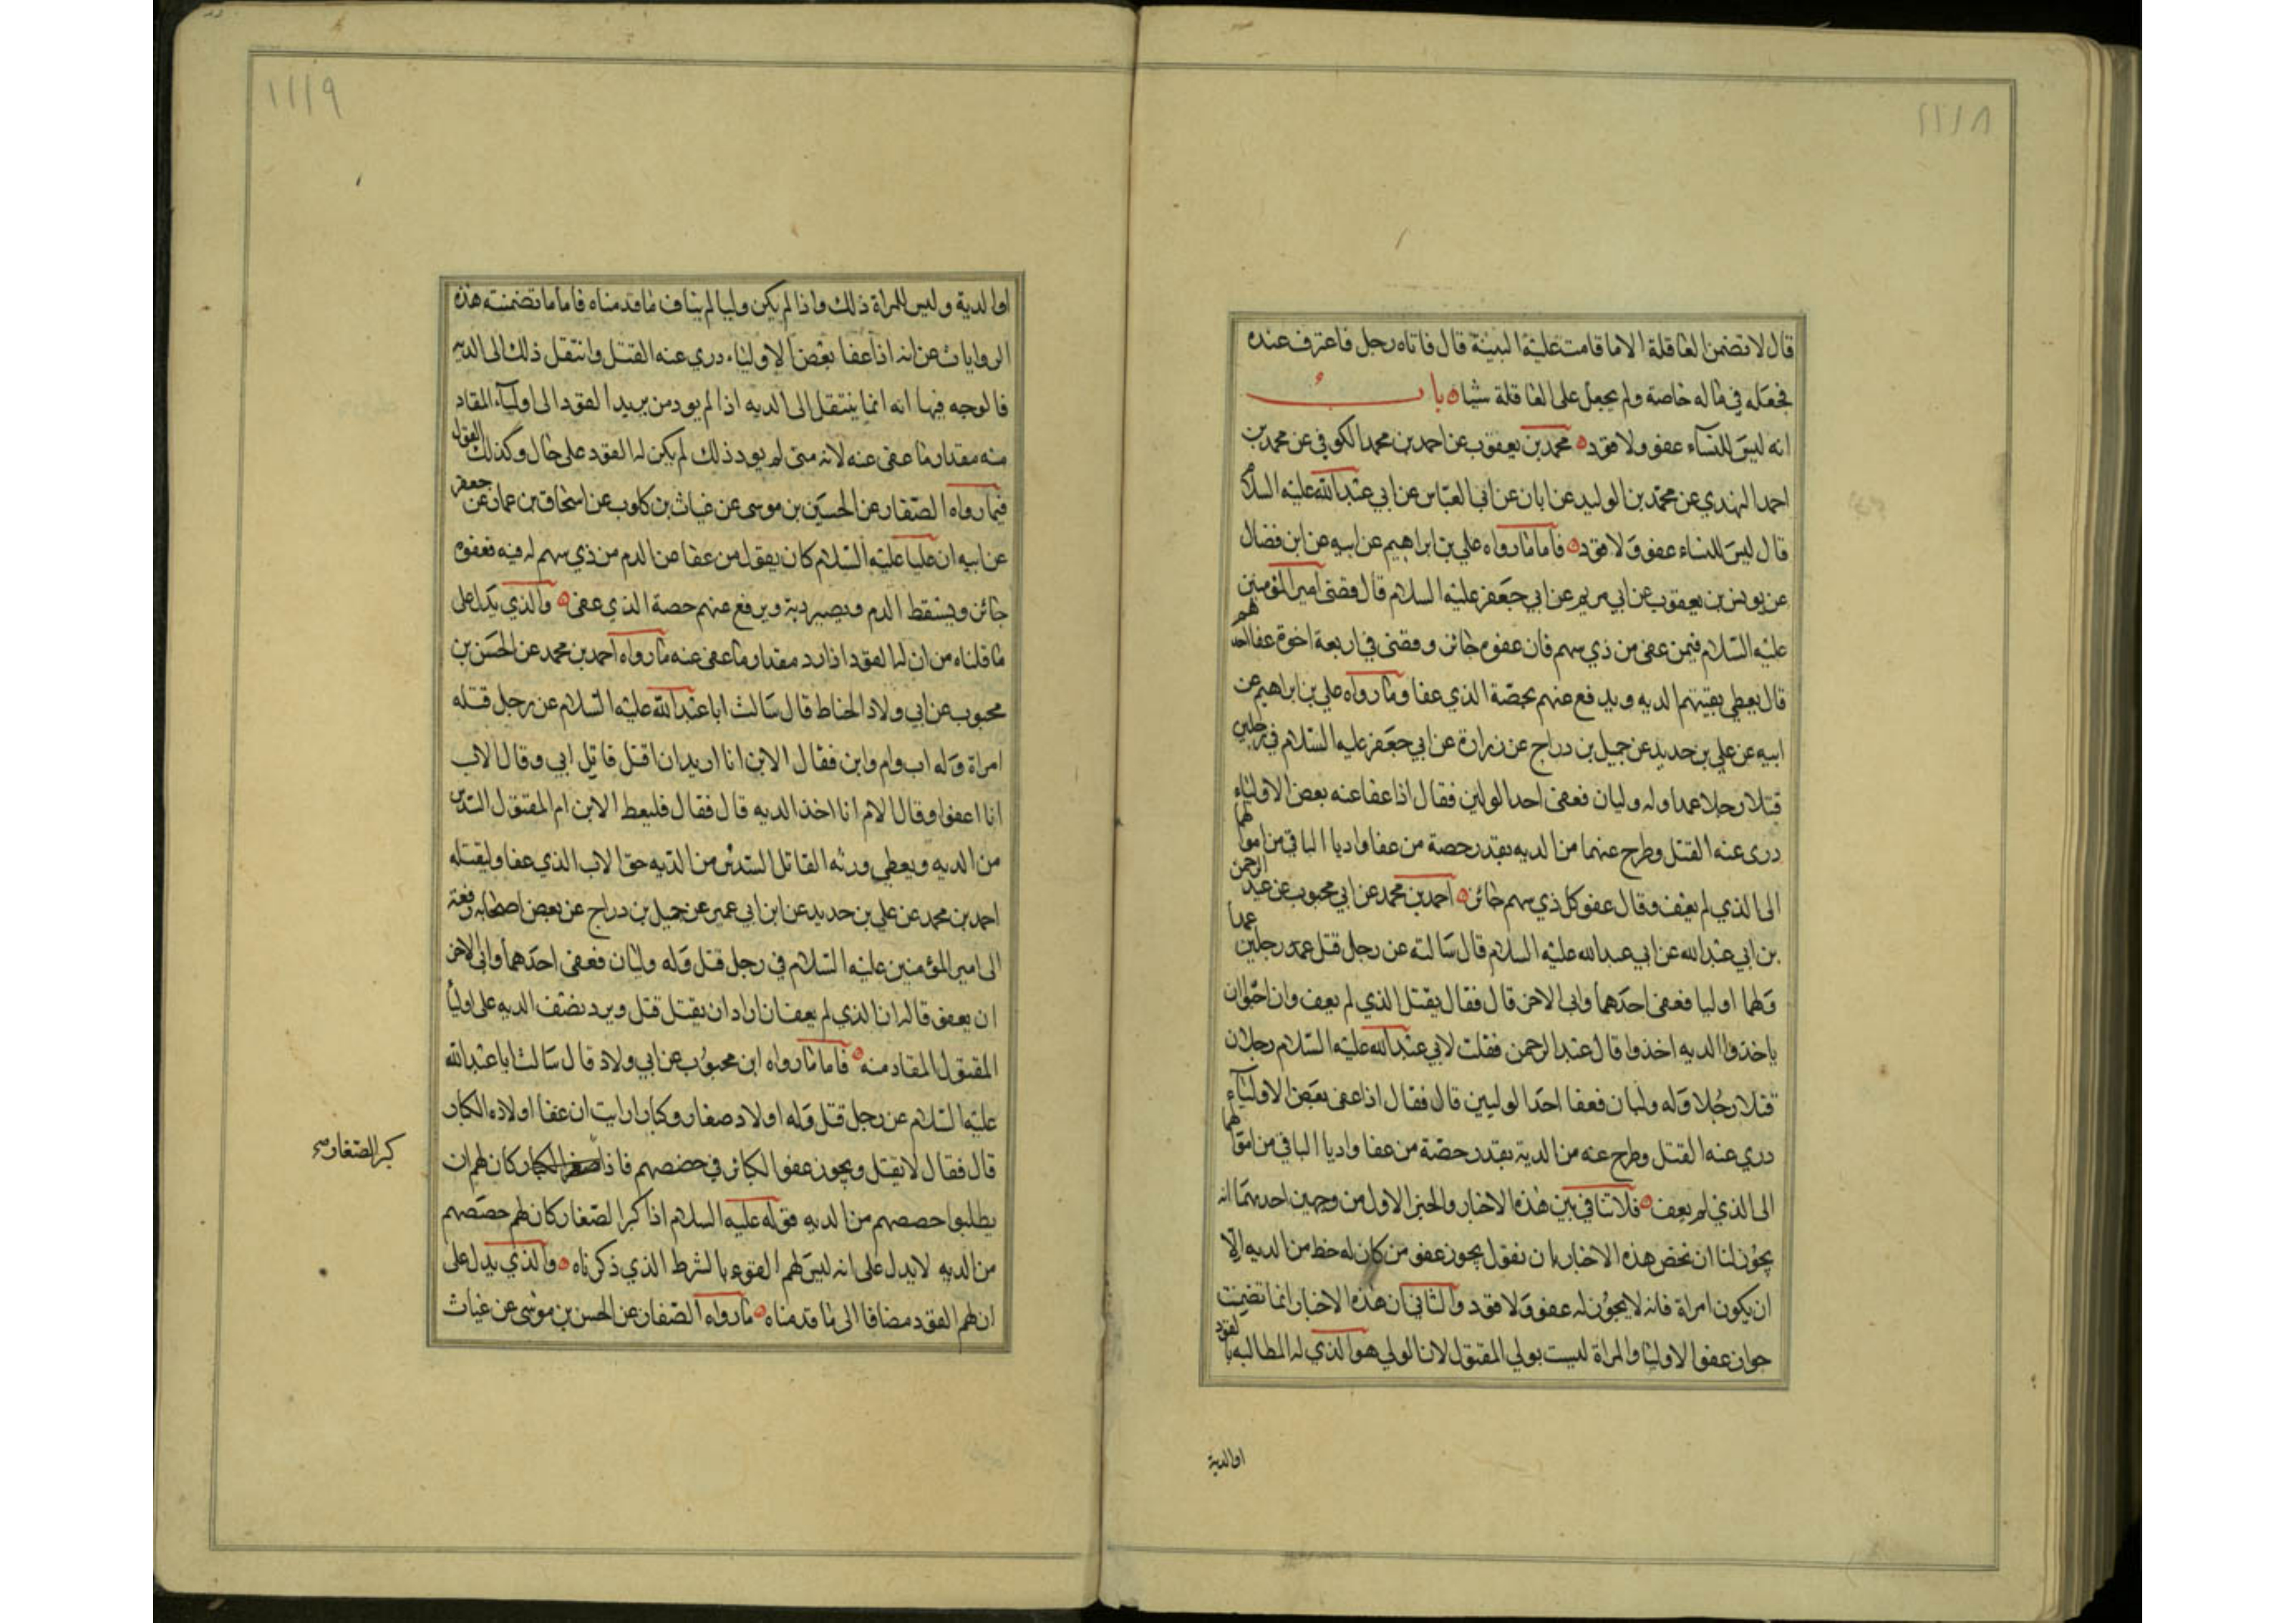 ١١١٨
قال لا تضمن العاقلة الا ما قامت عليه البينة قال فاتاه رجل فاعترف عنده
فجعله في ماله خاصة ولم يجعل على العاقلة شيئا باب
انه ليس للنساء عفو ولا قود محمد بن يعقوب عن احمد بن محمد الكوفي عن محمد بن
احمد النهدي عن محمد بن الوليد عن ابان عن ابي العباس عن ابي عبد الله عليه السلام
قال ليس للنساء عفو ولا قود فاما ما رواه علي بن ابراهيم عن ابيه عن ابن فضال
عن يونس بن يعقوب عن ابي مريم عن ابي جعفر عليه السلام قال قضى امير المؤمنين
عليه السلام فيمن عفى من ذي سهم فان عفوه جائز وقضى في اربعة اخوة عفا احدهم
قال يعطى بقيتهم الديه ويدفع عنهم بحصة الذي عفا وما رواه علي بن ابراهيم عن
ابيه عن علي بن حديد عن جميل بن دراج عن زرارة عن ابي جعفر عليه السلام في رجلين
قتلا رجلا عمدا وله وليان فعفى احد الولين فقال اذا عفا عنه بعض الاولياء
درى عنه القتل وطرح عنهما من الديه بقدر حصة من عفا واديا الباقي من اموالهما
الى الذي لم يعف وقال عفو كل ذي سهم جائز احمد بن محمد عن ابي محبوب عن عبد الرحمن
بن ابي عبد الله عن ابي عبد الله عليه السلام قال سالته عن رجل قتل عمد رجلين عمدا
ولهما اوليا فعفى احدهما وابى الاخر قال فقال يقتل الذي لم يعف وان احبوا ان
ياخذوا الديه اخذوا قال عبد الرحمن فقلت لابي عبد الله عليه السلام رجلان
قتلا رجلا وله وليان فعفا احد الوليين قال فقال اذا عفى بعض الاولياء
دري عنه القتل وطرح عنه من الدية بقدر حصة من عفا واديا الباقي من اموالهما
الى الذي لم يعف فلا تنافي بين هذه الاخبار والخبر الاول من وجهين احدهما انه
يجوز لنا ان نخص هذه الاخبار بان نقول يجوز عفو من كان له حظ من الديه الا
ان يكون امراة فانه لا يجوز له عفو ولا قود والثاني ان هذه الاخبار انما تضمنت
جواز عفو الاوليا والمراة ليست بولي المقتول لان الولي هو الذي له المطالبه بالقود
او الدية
١١١٩
او الدية وليس للمراة ذلك واذا لم يكن وليا لم يناف ما قدمناه فاما ما تضمنته هذه
الروايات عن انه اذا عفا بعض الاولياء دري عنه القتل وانتقل ذلك الى الديه
فالوجه فيها انه انما ينتقل الى الديه اذا لم يود من يريد القود الى اولياء المقاد
منه مقدار ما عفى عنه لانه متى لم يود ذلك لم يكن له القود على حال وكذلك القول
فيما رواه الصفار عن الحسين بن موسى عن غياث بن كلوب عن اسحاق بن عمار عن جعفر
عن ابيه ان عليا عليه السلام كان يقول من عفا عن الدم من ذي سهم له فيه فعفوه
جائز ويسقط الدم وتصير دية ويرفع عنهم حصة الذي عفى والذي يدل على
ما قلناه من ان لها القود اذا رد مقدار ما عفى عنه ما رواه احمد بن محمد عن الحسن بن
محبوب عن ابي ولاد الحناط قال سالت ابا عبد الله عليه السلام عن رجل قتله
امراة وله اب وام وابن فقال الابن انا اريد ان اقتل قاتل ابي وقال الاب
انا اعفو وقالا لام انا اخذ الديه قال فقال فليعط الابن ام المقتول السدس
من الديه ويعطي ورثه القاتل السدس من الديه حق الاب الذي عفا وليقتله
احمد بن محمد عن علي بن حديد عن ابن ابي عمير عن جميل بن دراج عن بعض اصحابه رفعه
الى امير المؤمنين عليه السلام في رجل قتل وله وليان فعفى احدهما وابى الاخر
ان يعفو قال ان الذي لم يعف ان اراد ان يقتل قتل ويرد نصف الديه على اوليا
المقتول المقاد منه فاما ما رواه ابن محبوب عن ابي ولاد قال سالت ابا عبد الله
عليه السلام عن رجل قتل وله اولاد صغار وكبار ارايت ان عفا اولاده الكبار
قال فقال لا يقتل ويجوز عفو الكبار في حصصهم فاذا كان لهم ان
كبر الصغار صح
يطلبوا حصصهم من الديه قوله عليه السلام اذا كبر الصغار كان لهم حصصهم
من الديه لا يدل على انه ليس لهم القود بالشرط الذي ذكرناه والذي يدل على
ان لهم القود مضافا الى ما قدمناه ما رواه الصفار عن الحسن بن موسى عن غياث